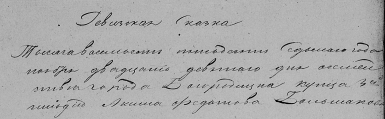 Ревизская сказка
Тысяча восемьсот пятьдесят седьмаго года
ноября двадцать девятаго дня
города Богородицка купца 3й
гильдии Акима Федотова